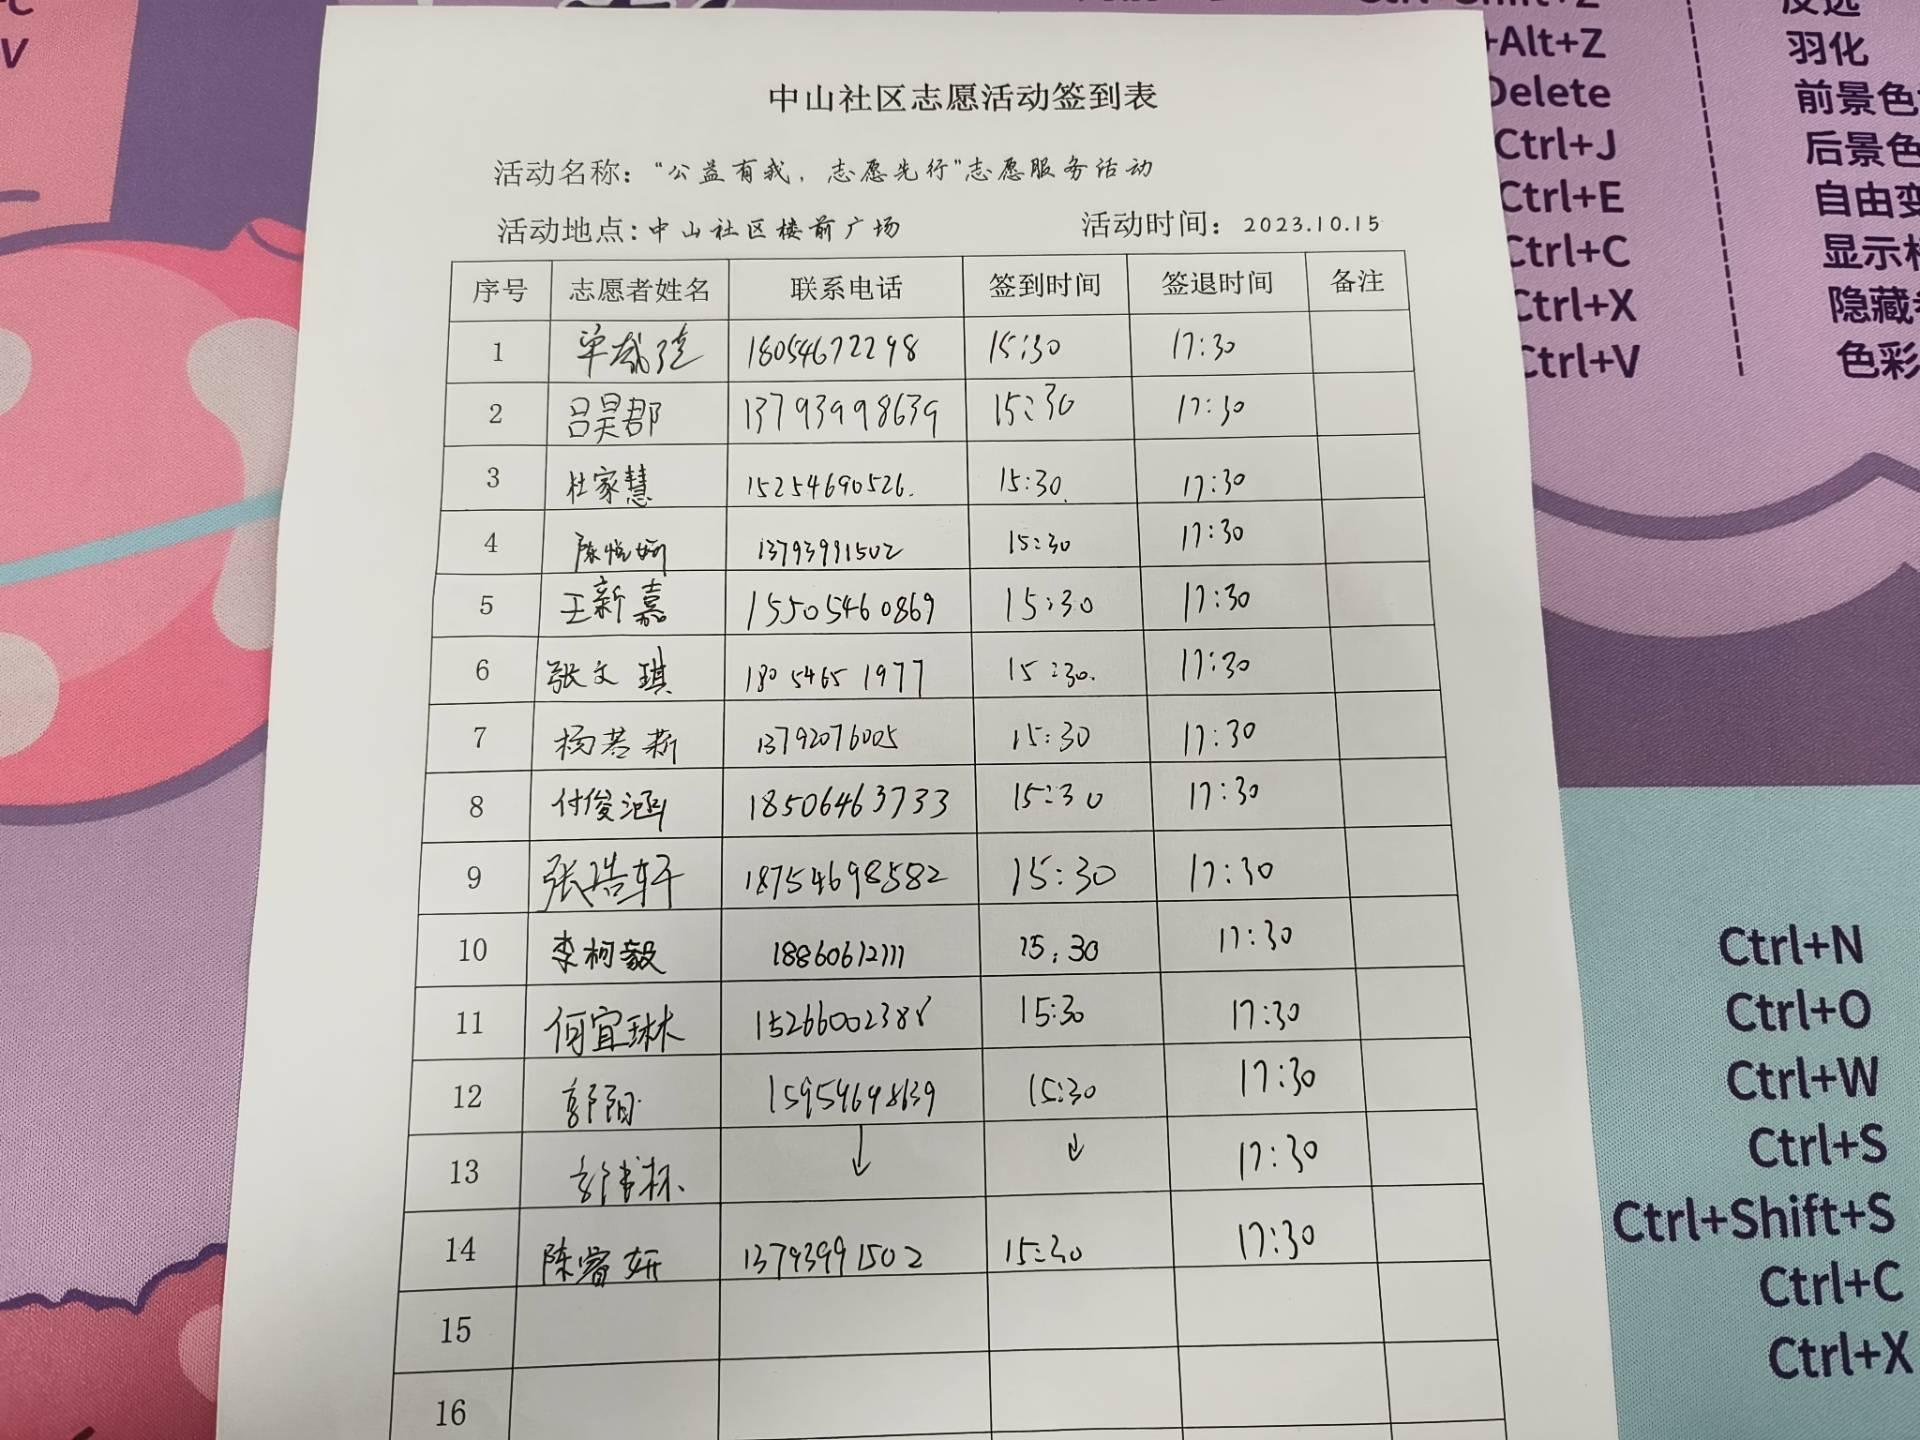 中山社区志愿活动签到表
活动名称：“公益有我，志愿先行”志愿服务活动
活动地点：中山社区楼前广场 活动时间：2023.10.15
序号 志愿者姓名 联系电话 签到时间 签退时间 备注
1 18054672298 15:30 17:30
2 吕昊郡 13793998639 15:30 17:30
3 杜家慧 15254690526. 15:30. 17:30
4 陈悦妍 13793991502 15:30 17:30
5 王新嘉 15505460869 15:30 17:30
6 张文琪 18054651977 15:30. 17:30
7 杨若新 13792076005 15:30 17:30
8 付俊涵 18506463733 15:30 17:30
9 张浩轩 18754698582 15:30 17:30
10 李柯毅 18860612111 15:30 17:30
11 何宜琳 15266002388 15:30 17:30
12 郭阳 15954698639 15:30 17:30
13 ↓ ↓ 17:30
14 陈睿妍 13793991502 15:30 17:30
15
16
V
Alt+Z 羽化
Delete 前景色
Ctrl+J 后景色
Ctrl+E 自由变
Ctrl+C 显示
Ctrl+X 隐藏
Ctrl+V 色彩
Ctrl+N
Ctrl+O
Ctrl+W
Ctrl+S
Ctrl+Shift+S
Ctrl+C
Ctrl+X